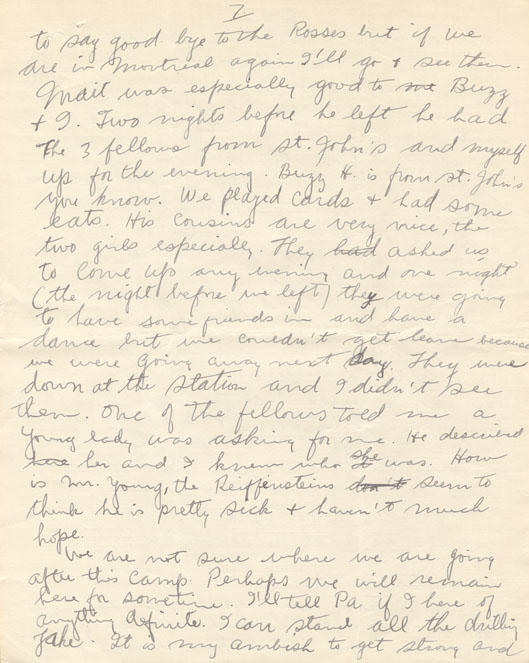 7
to say good bye to the Rosses but if we
are in Montreal again I'll go & see them.
Mait was especially good to Buzz
& I. Two nights before he left he had
the 3 fellows from St. John's and myself
up for the evening. Buzz H. is from St. John's
you know. We played cards & had some
eats. His cousins are very nice, the
two girls especially. They had asked us
to come up any evening and one night
(the night before we left) they were going
to have some friends in and have a
dance but we couldn't get leave because
we were going away next day. They were
down at the station and I didn't see
them. One of the fellows told me a
young lady was asking for me. He described
her and I knew who she was. How
is Mr. Young, the Reiffensteins don't seem to
think he is pretty sick & haven't much
hope.
We are not sure where we are going
after this camp. Perhaps we will remain
here for sometime. I'll tell Pa if I here of
anything definite. I can stand all the drilling
fake. It is my ambish to get strong and